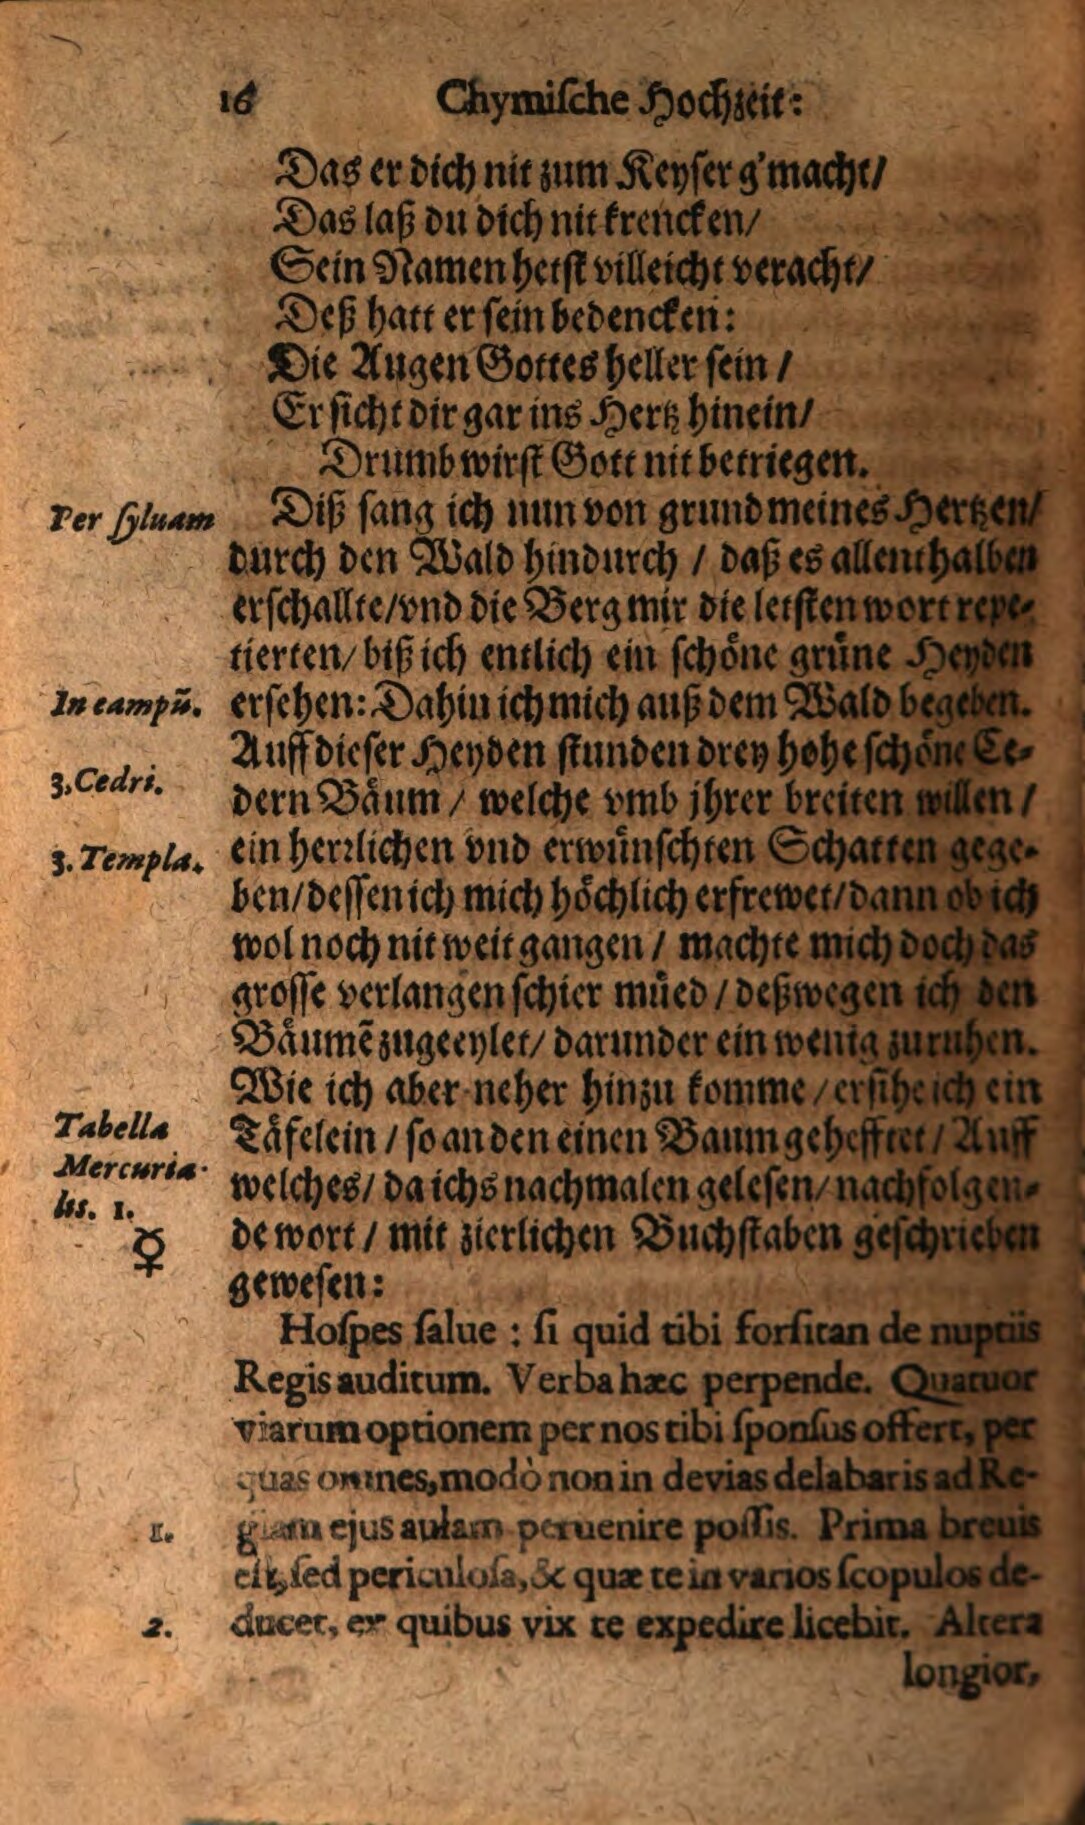 16 Chymische Hochzeit:
Das er dich nit zum Keyser g'macht/
Das laß du dich nit krencken/
Sein Namen hetst villeicht veracht/
Deß hatt er sein bedencken:
Die Augen Gottes heller sein /
Er sicht dir gar ins Hertz hinein/
Drumb wirst Gott nit betriegen.
Per sylvam
Diß sang ich nun von grund meines Hertzen/
durch den Wald hindurch / daß es allenthalben
erschallte/vnd die Berg mir die letsten wort repe-
tierten/ biß ich entlich ein schöne grüne Heyden
In campũ.
ersehen: Dahin ich mich auß dem Wald begeben.
Auff dieser Heyden stunden drey hohe schöne Ce-
3. Cedri.
dern Bäum / welche vmb jhrer breiten willen /
3. Templa.
ein herrlichen vnd erwünschten Schatten gege-
ben/dessen ich mich höchlich erfrewet/dann ob ich
wol noch nit weit gangen / machte mich doch das
grosse verlangen schier müed / deßwegen ich den
Bäumẽ zugeeylet/ darunder ein wenig zuruhen.
Wie ich aber neher hinzu komme / ersihe ich ein
Tabella
Täfelein / so an den einen Baum gehefftet / Auff
Mercuria-
welches/ da ichs nachmalen gelesen/ nachfolgen-
lis. 1.
de wort / mit zierlichen Buchstaben geschrieben
☿
gewesen:
Hospes salue : si quid tibi forsitan de nuptiis
Regis auditum. Verba hæc perpende. Quatuor
viarum optionem per nos tibi sponsus offert, per
quas omnes, modò non in devias delabaris ad Re-
1.
giam ejus aulam peruenire possis. Prima breuis
est, sed periculosa, & quæ te in varios scopulos de-
2.
ducet, ex quibus vix te expedire licebit. Altera
longior,